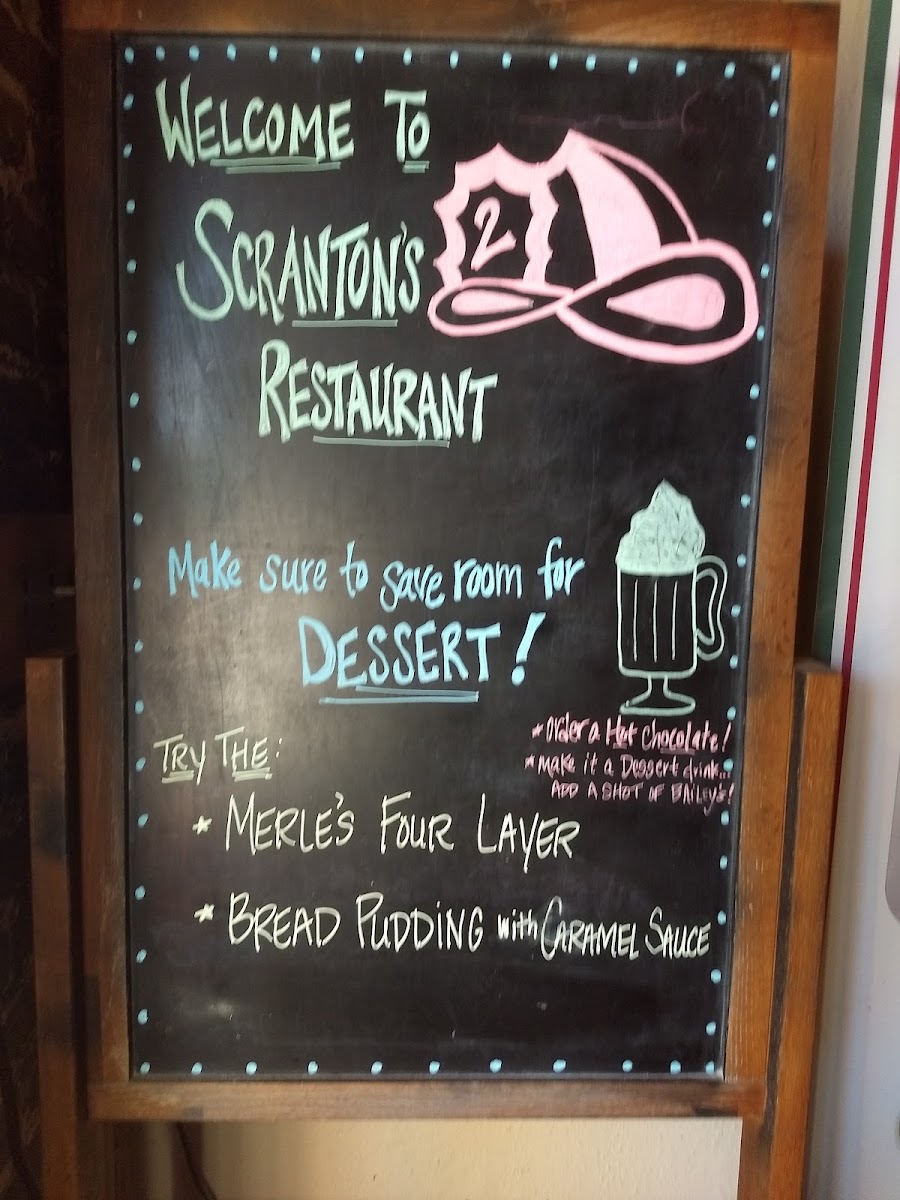 WELCOME TO
SCRANTON'S
2
RESTAURANT
Make sure to save room for
DESSERT!
*order a Hot chocolate!
*make it a Dessert drink...
ADD A SHOT OF BAILEY'S!
TRY THE:
* MERLE'S FOUR LAYER
* BREAD PUDDING with CARAMEL SAUCE